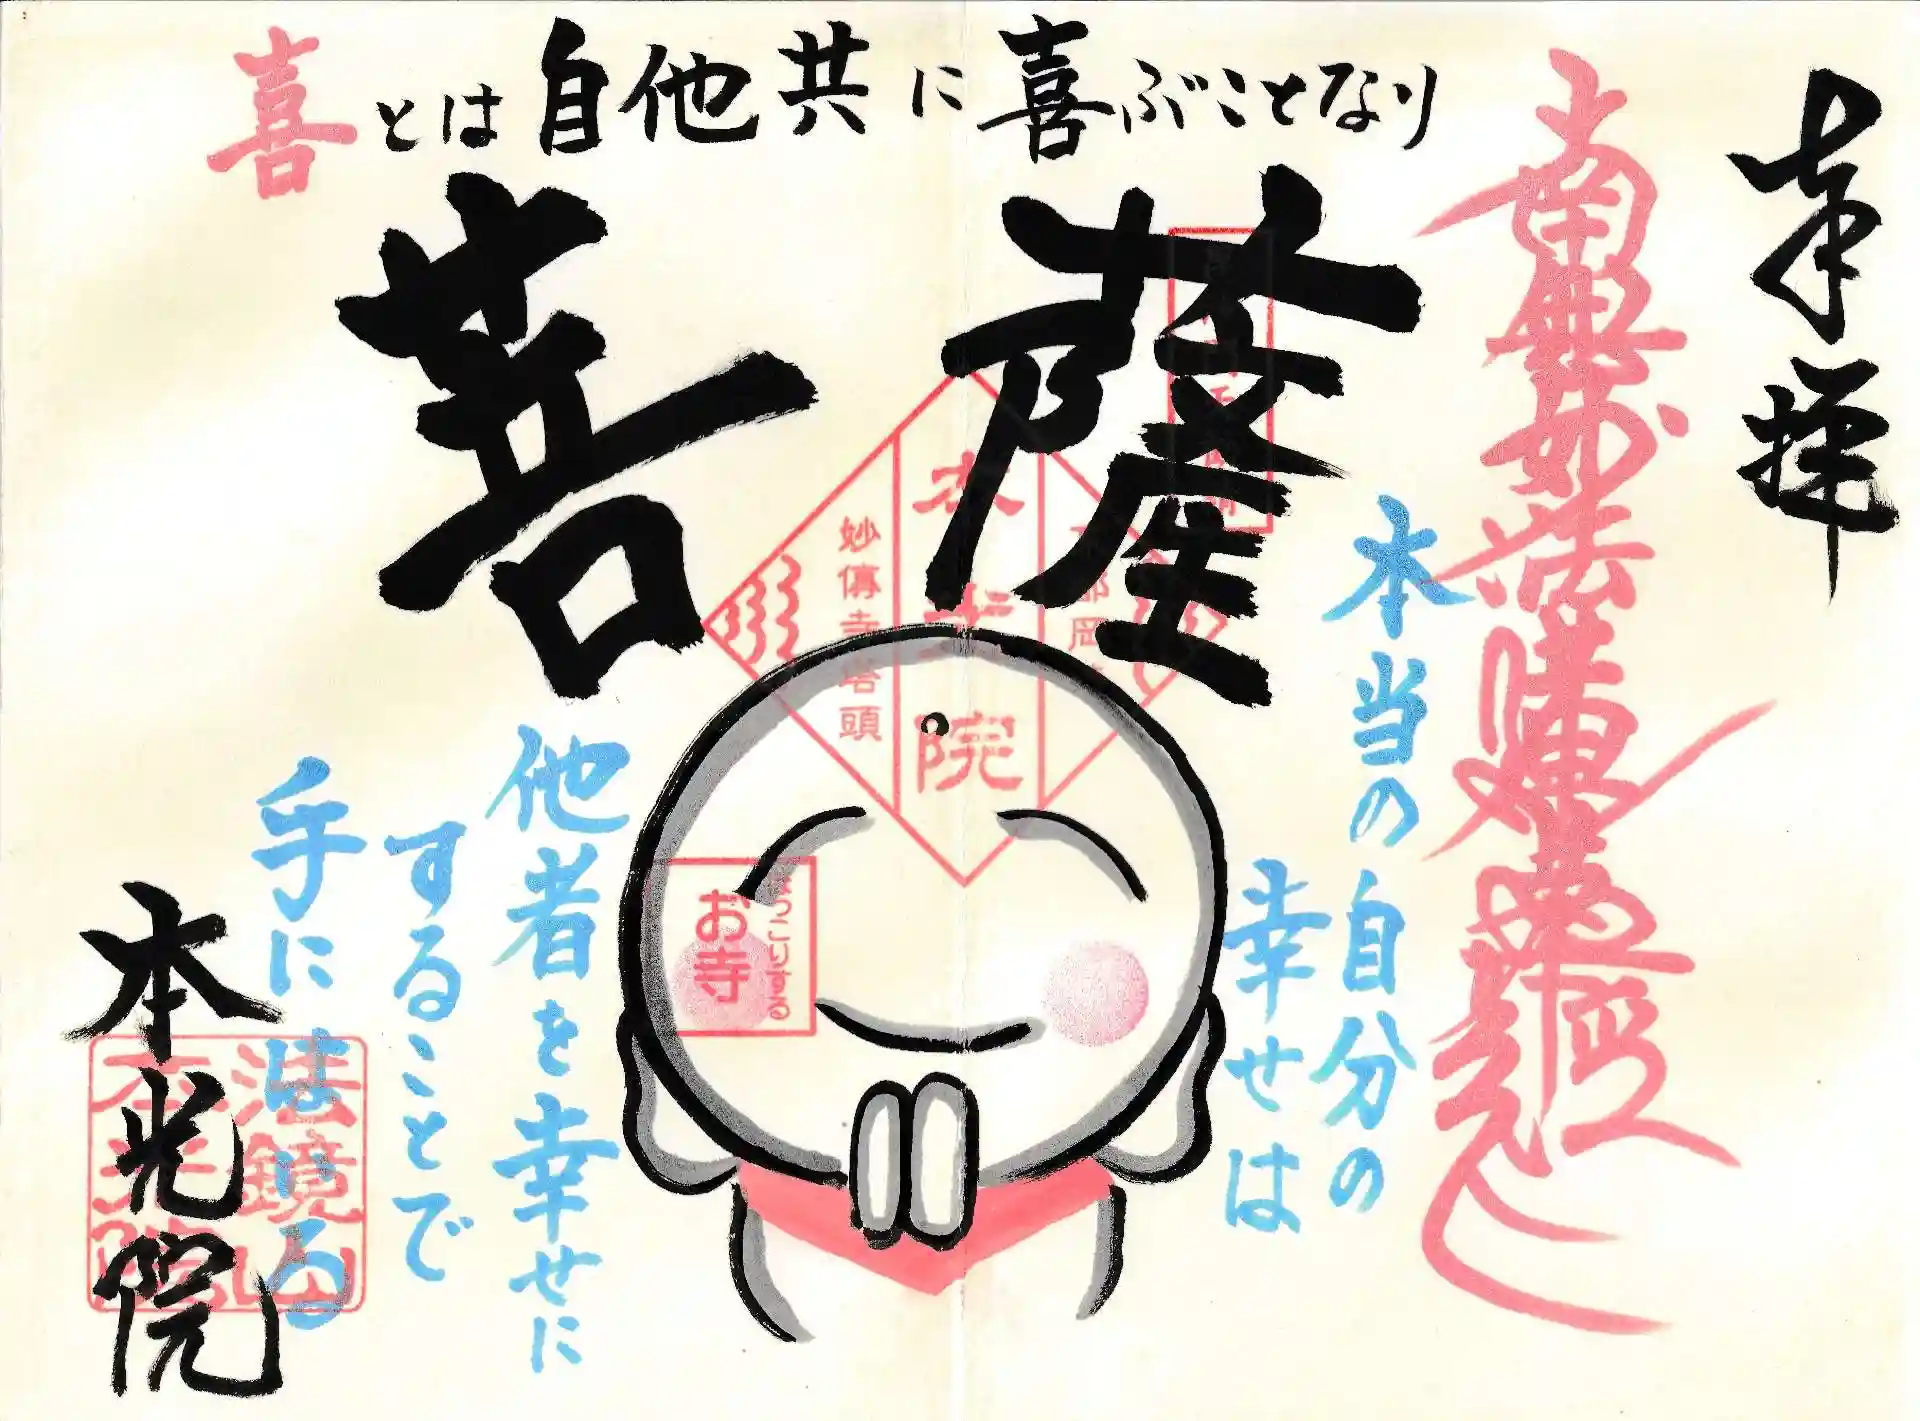 奉拝
南無妙法蓮華経
喜とは自他共に喜ぶことなり
菩薩
本当の自分の
幸せは
他者を幸せに
することで
手にはいる
本光院
本光院
妙傳寺塔頭
ほっこりする
お寺
法鏡山
本光院